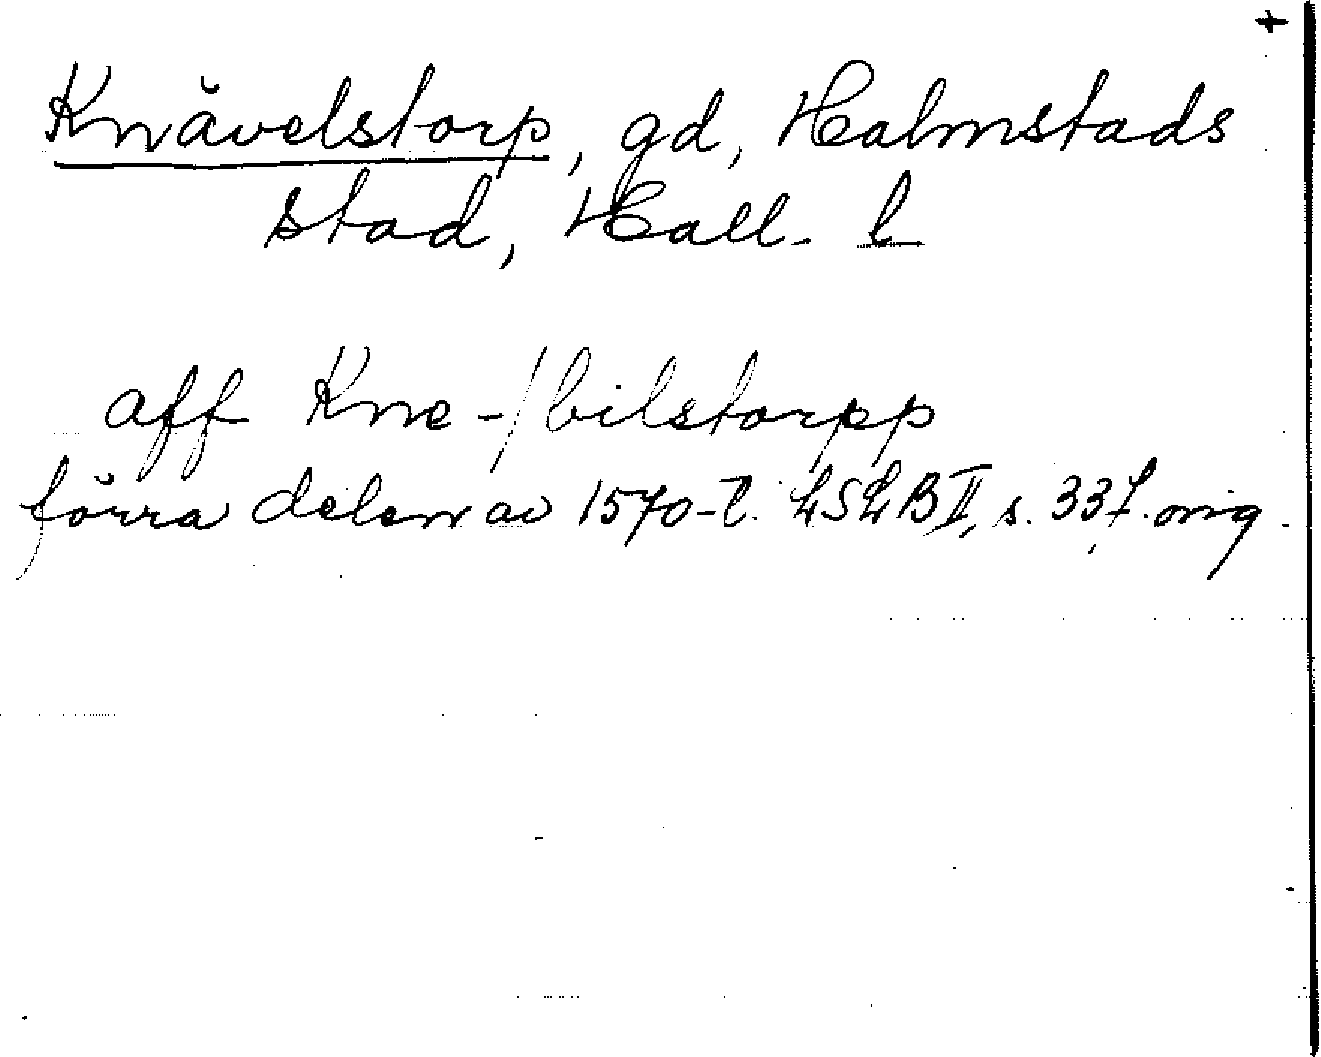 +
Knävelstorp, gd, Halmstads
stad, Hall. l
aff Kne-/bilstorpp
förra delen av 1570-t. LSLB II, s. 337. orig.